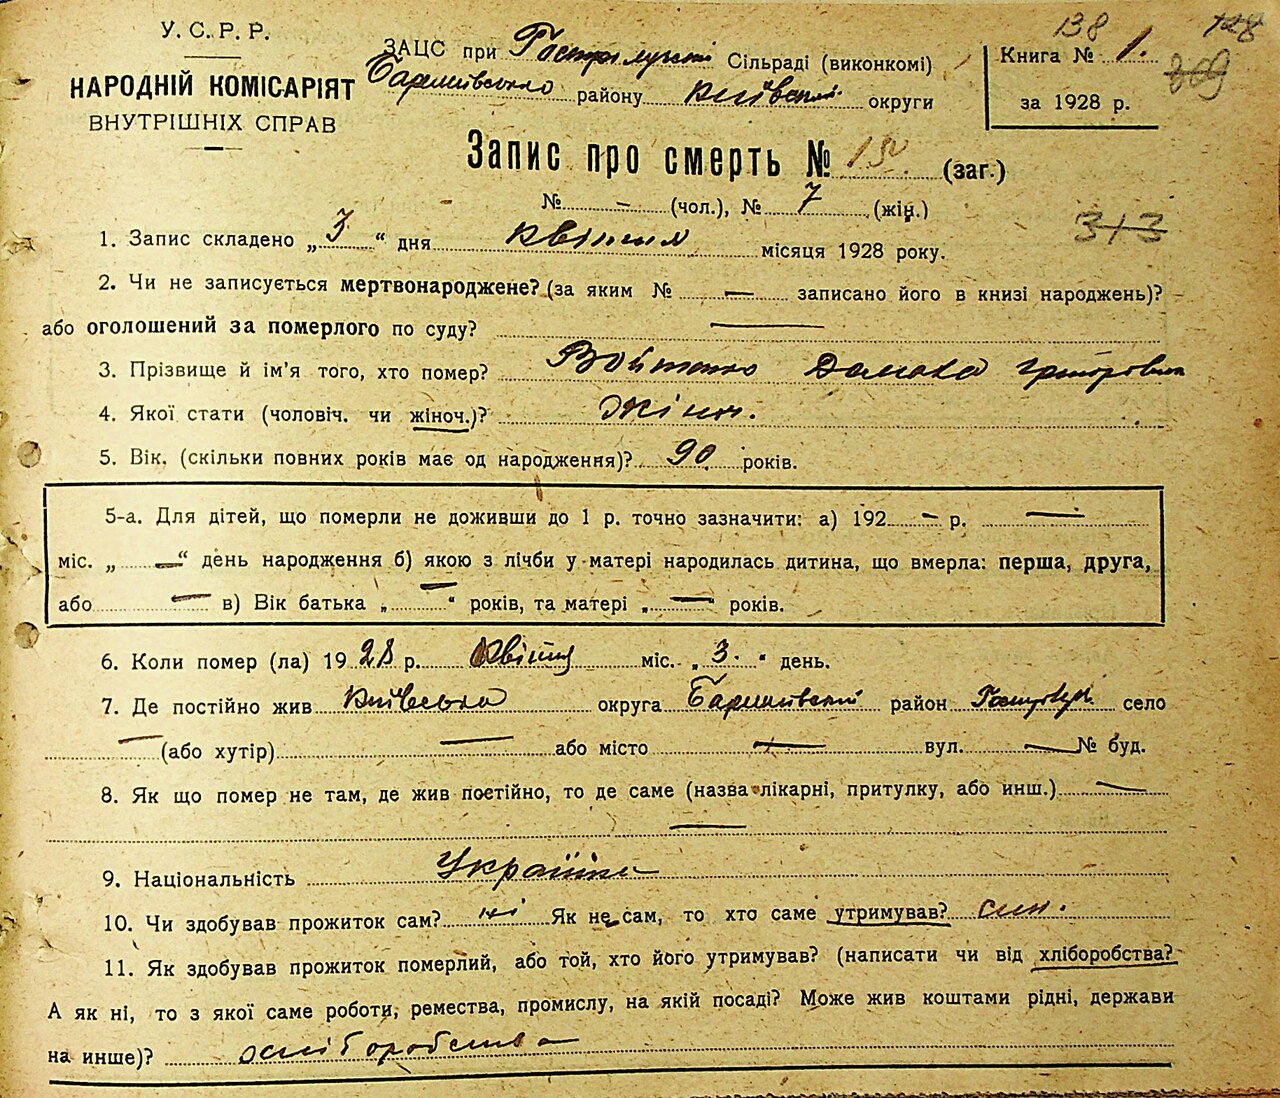 138 128
У. С. Р. Р.
НАРОДНІЙ КОМІСАРІЯТ
ВНУТРІШНІХ СПРАВ
ЗАЦС при Гостролучкі Сільраді (виконкомі)
Баришівсько району Київськ. округи
Книга № 1.
за 1928 р.
369
Запис про смерть № 15 (заг.)
№ – (чол.), № 7 (жін.)
313
1. Запис складено „ 3 “ дня квітня місяця 1928 року.
2. Чи не записується мертвонароджене? (за яким № — записано його в книзі народжень)?
або оголошений за померлого по суду? —
3. Прізвище й ім’я того, хто помер? Войтенко Домаха Григоровна
4. Якої стати (чоловіч. чи жіноч.)? Жіноч.
5. Вік. (скільки повних років має од народження)? 90 років.
5-а. Для дітей, що померли не доживши до 1 р. точно зазначити: а) 192 – р. —
міс. „ — “ день народження б) якою з лічби у матері народилась дитина, що вмерла: перша, друга,
або — в) Вік батька „ — “ років, та матері „ — “ років.
6. Коли помер (ла) 19 28 р. Квітня міс. „ 3. “ день.
7. Де постійно жив Київська округа Баришівський район село
— (або хутір) — або місто — вул. — № буд.
8. Як що помер не там, де жив постійно, то де саме (назва лікарні, притулку, або инш.) —
—
9. Національність Українка
10. Чи здобував прожиток сам? ні Як не сам, то хто саме утримував? син.
11. Як здобував прожиток померлий, або той, хто його утримував? (написати чи від хліборобства?
А як ні, то з якої саме роботи, ремества, промислу, на якій посаді? Може жив коштами рідні, держави
на инше)? хліборобства